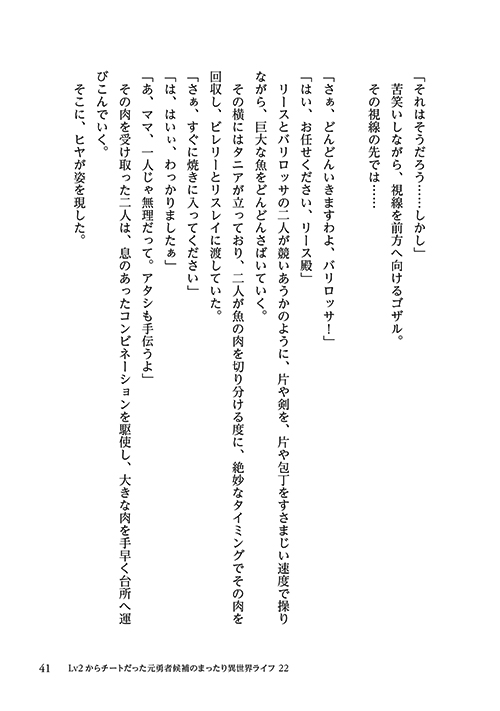 「それはそうだろう……しかし」
苦笑いしながら、視線を前方へ向けるゴザル。
その視線の先では……
「さぁ、どんどんいきますわよ、バリロッサ！」
「はい、お任せください、リース殿」
リースとバリロッサの二人が競いあうかのように、片や剣を、片や包丁をすさまじい速度で操り
ながら、巨大な魚をどんどんさばいていく。
その横にはタニアが立っており、二人が魚の肉を切り分ける度に、絶妙なタイミングでその肉を
回収し、ビレリーとリスレイに渡していた。
「さぁ、すぐに焼きに入ってください」
「は、はいぃ、わっかりましたぁ」
「あ、ママ、一人じゃ無理だって。アタシも手伝うよ」
その肉を受け取った二人は、息のあったコンビネーションを駆使し、大きな肉を手早く台所へ運
びこんでいく。
そこに、ヒヤが姿を現した。
41 Lv2からチートだった元勇者候補のまったり異世界ライフ 22